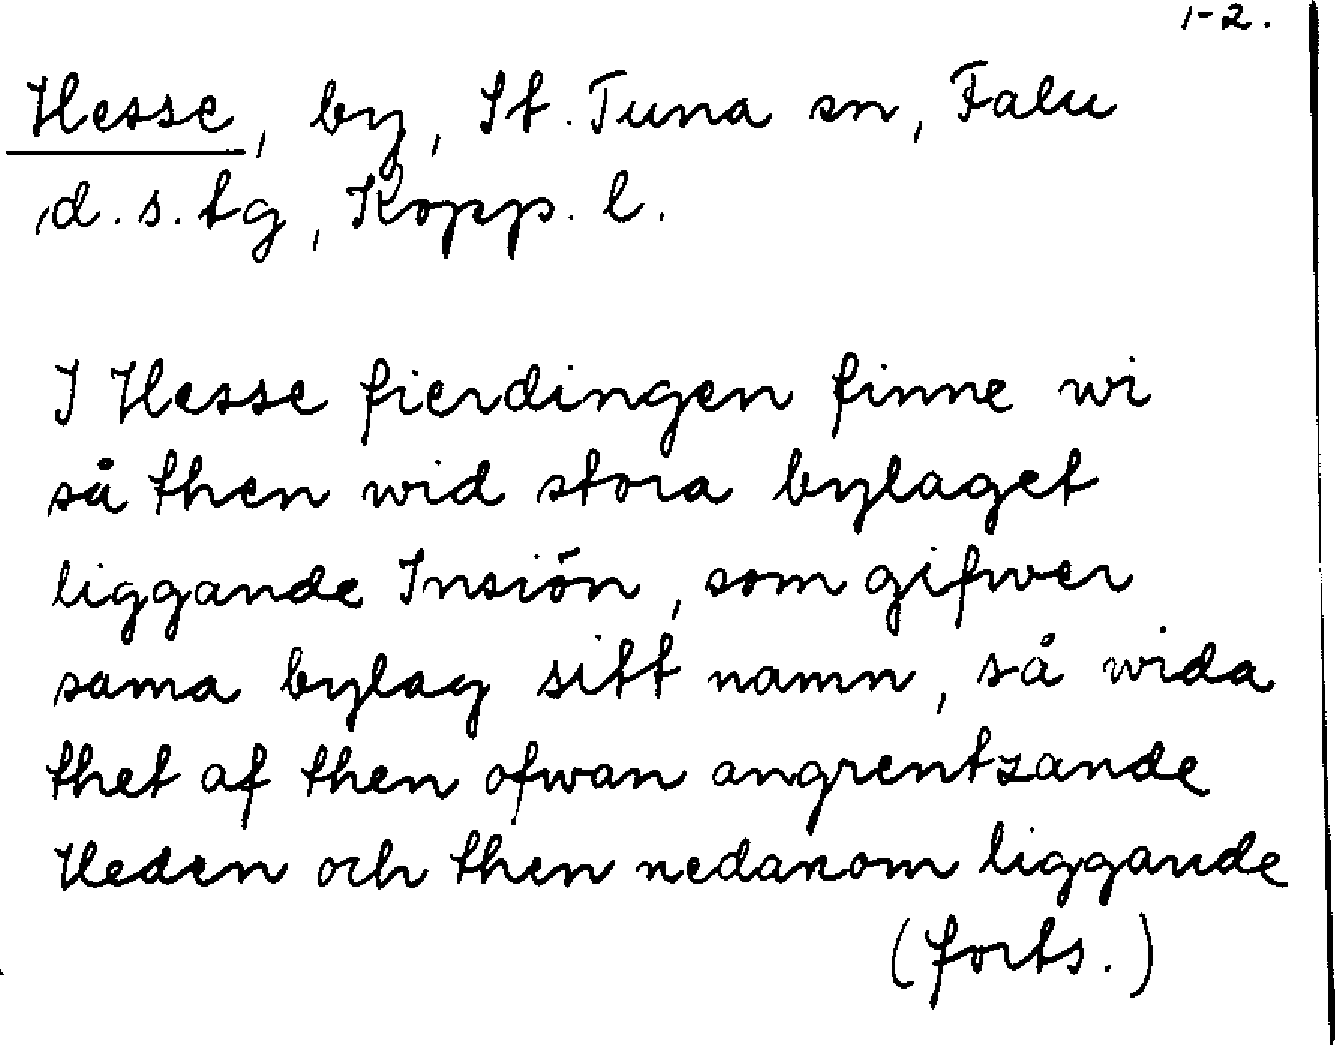 1-2.
Hesse, by, St. Tuna sn, Falu
d.s.tg, Kopp. l.
I Hesse fierdingen finne wi
så then wid stora bylaget
liggande Insiön, som gifwer
sama bylag sitt namn, så wida
thet af then ofwan angrentzande
Heden och then nedanom liggande
(forts.)